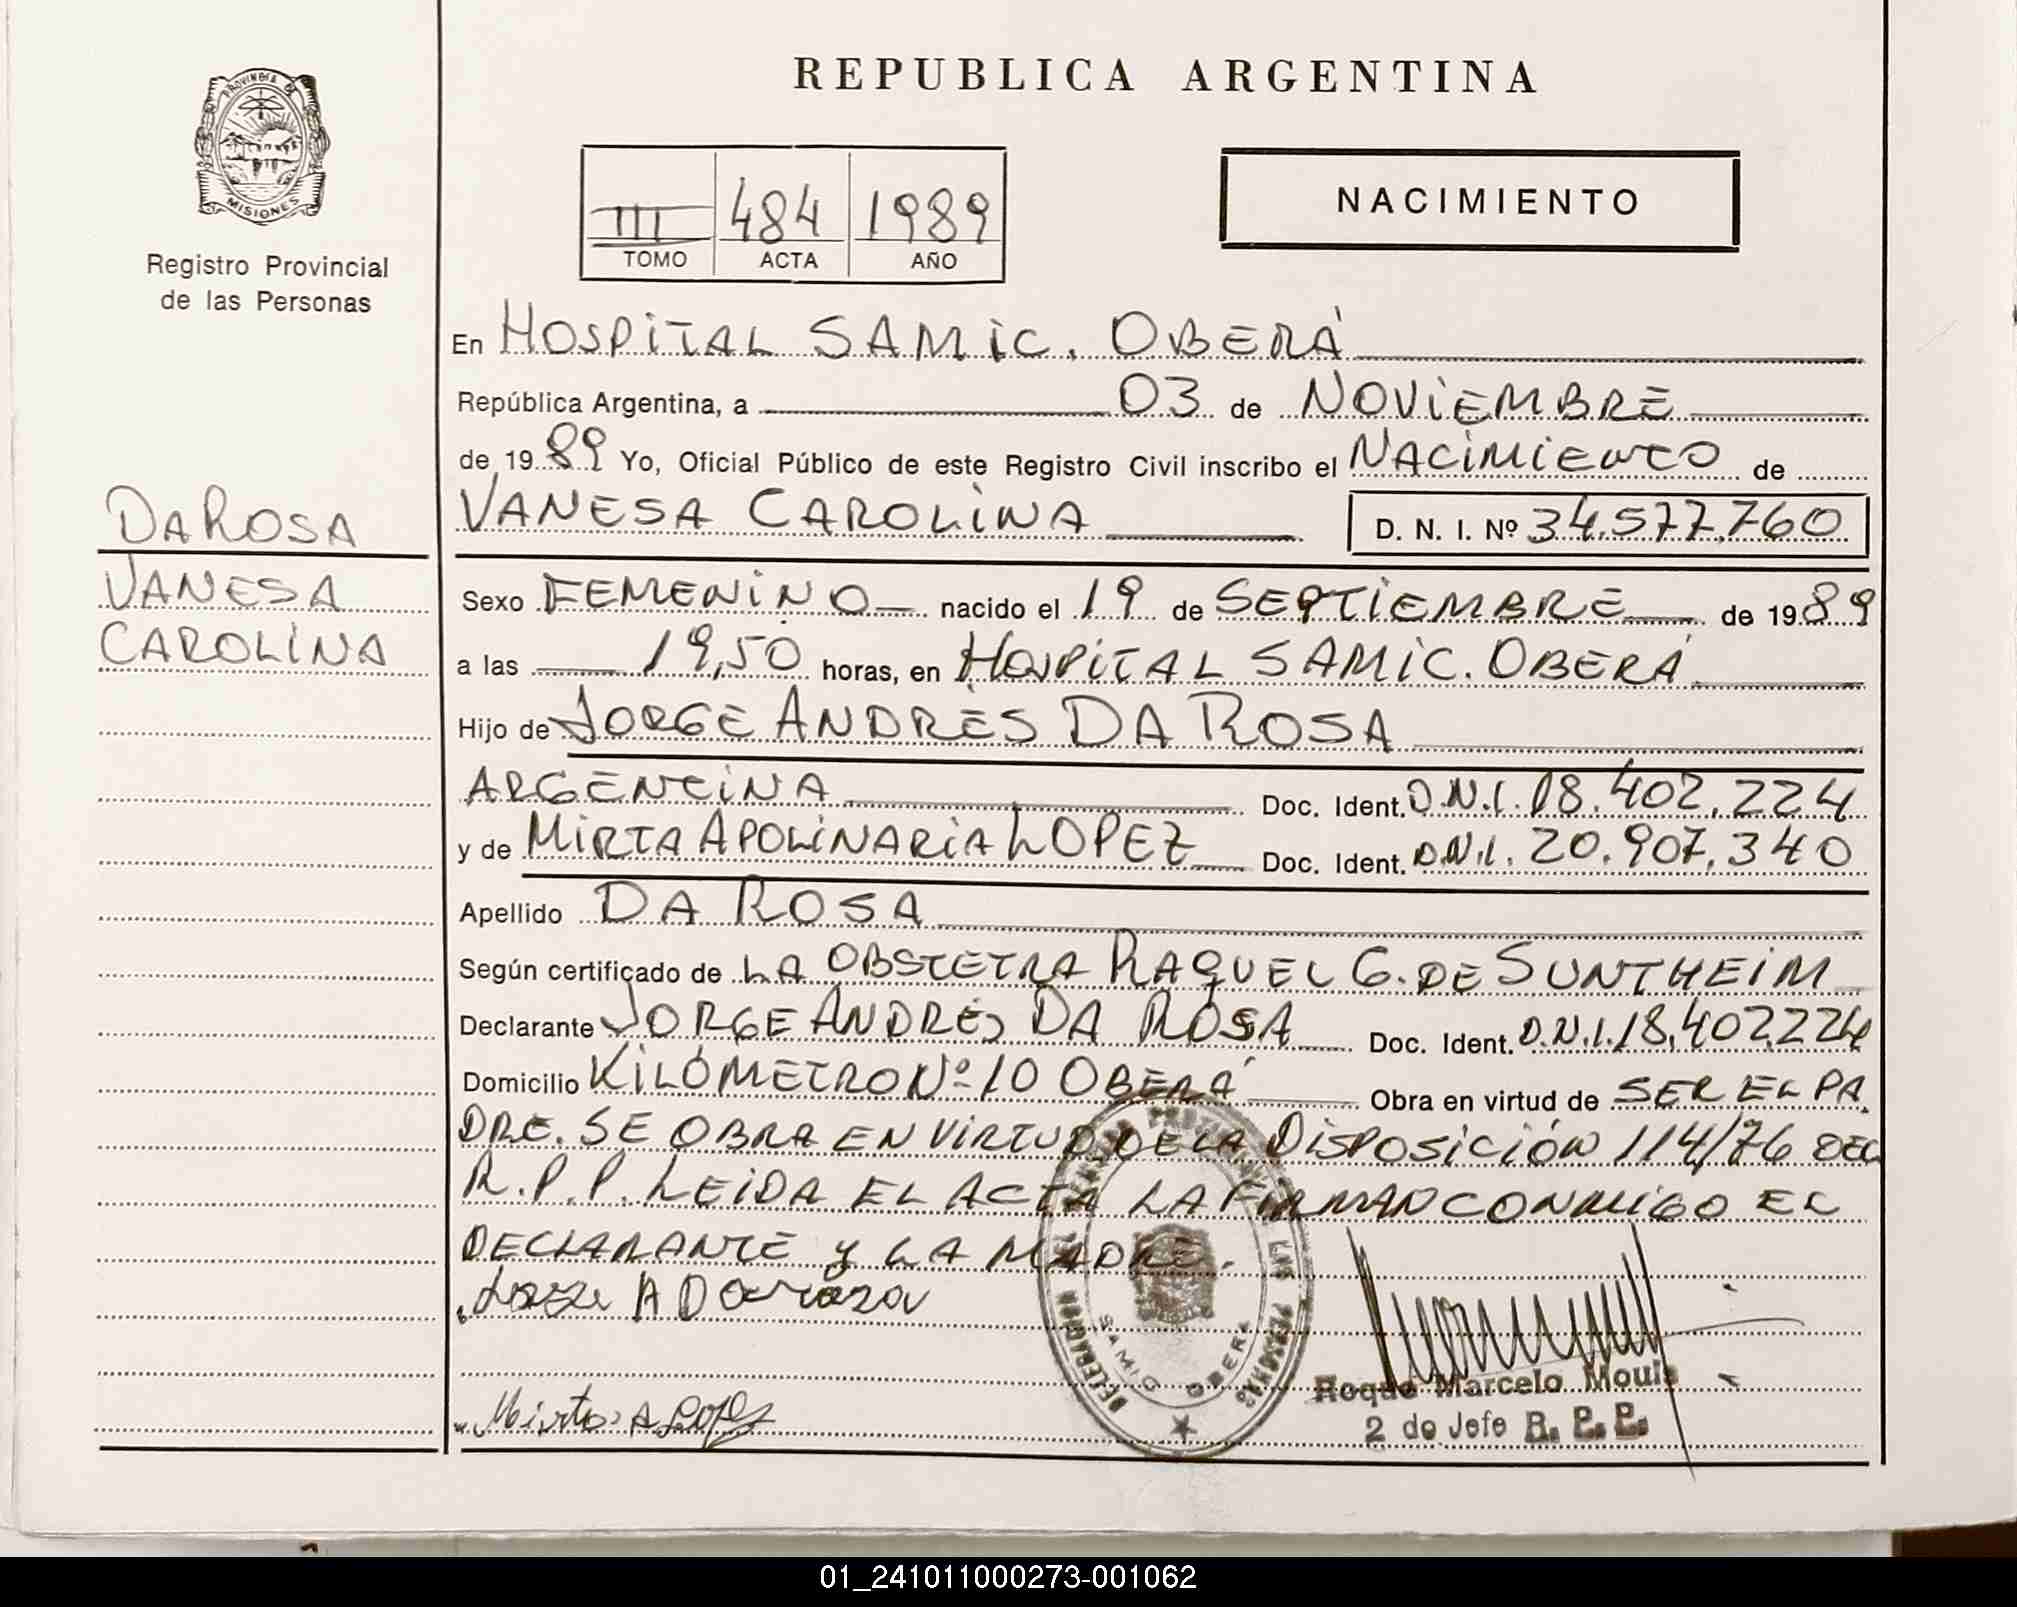 REPUBLICA ARGENTINA
PROVINCIA DE
MISIONES
Registro Provincial
de las Personas
III 484 1989
TOMO ACTA AÑO
NACIMIENTO
En HOSPITAL SAMIC. OBERÁ
República Argentina, a 03 de NOVIEMBRE
de 1989 Yo, Oficial Público de este Registro Civil inscribo el NACIMIENTO de
VANESA CAROLINA D. N. I. Nº 34.577.760
DA ROSA
VANESA
CAROLINA
Sexo FEMENINO nacido el 19 de SEPTIEMBRE de 1989
a las 19,50 horas, en HOSPITAL SAMIC. OBERÁ
Hijo de JORGE ANDRES DA ROSA
ARGENTINA Doc. Ident. D.N.I. 18.402.224
y de MIRTA APOLINARIA LOPEZ Doc. Ident. D.N.I. 20.907.340
Apellido DA ROSA
Según certificado de LA OBSTETRA RAQUEL G. DE SUNTHEIM
Declarante JORGE ANDRES DA ROSA Doc. Ident. D.N.I. 18.402.224
Domicilio KILÓMETRO Nº 10 OBERÁ Obra en virtud de SER EL PA
DRE. SE OBRA EN VIRTUD DE LA DISPOSICIÓN 114/76 DEL
R.P.P. LEIDA EL ACTA LA FIRMAN CONMIGO EL
DECLARANTE Y LA MADRE.
Jorge A Da rosa
Mirta A Lopez
DELEGACION
LAS PERSONAS
SAMIC OBERA
Roque Marcelo Mouls
2 do Jefe R. P. P.
01_241011000273-001062